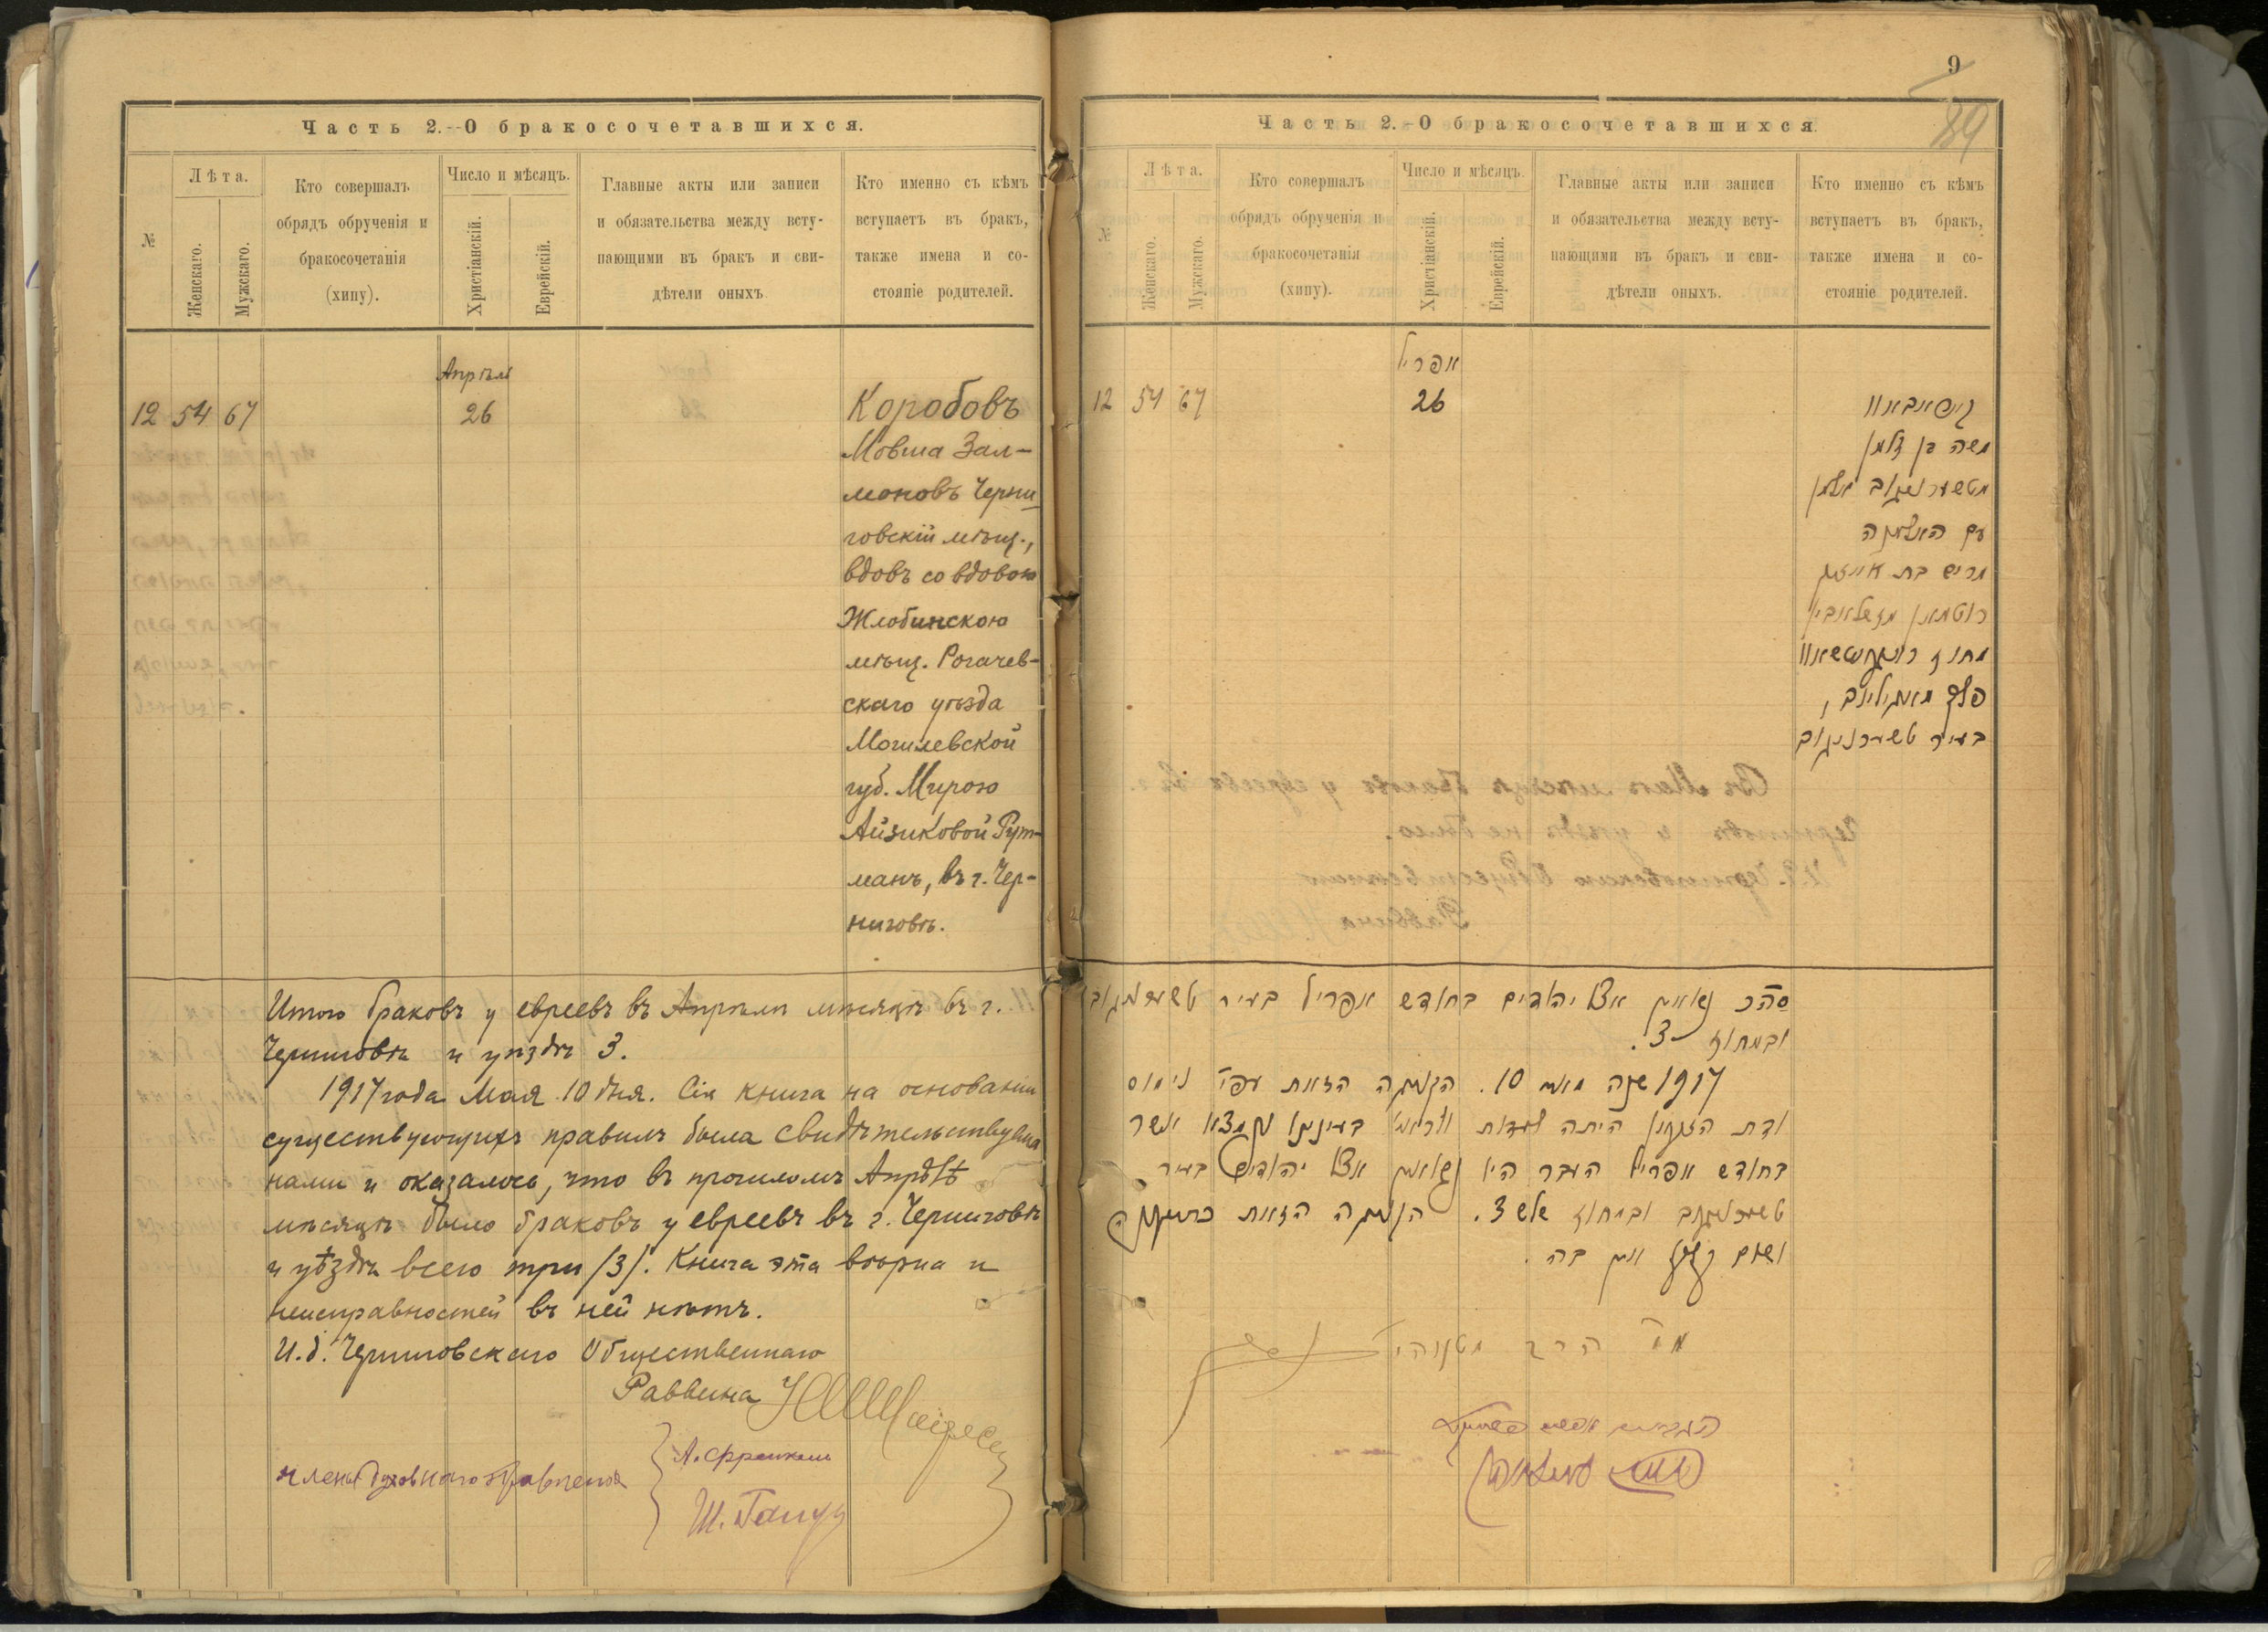 Часть 2.—О бракосочетавшихся.
№
Лѣта.
Женскаго.
Мужскаго.
Кто совершалъ
обрядъ обрученія и
бракосочетанія
(хипу).
Число и мѣсяцъ.
Христіанскій.
Еврейскій.
Главные акты или записи
и обязательства между всту-
пающими въ бракъ и сви-
дѣтели оныхъ.
Кто именно съ кѣмъ
вступаетъ въ бракъ,
также имена и со-
стояніе родителей.
Апрѣль
12 54 67 26
Коробовъ
Мовша Зал-
моновъ Черни
говскій мѣщ.,
вдовъ со вдовою
Жлобинскою
мѣщ. Рогачев-
скаго уѣзда
Могилевской
губ. Мирою
Айзиковой Рут-
манъ, въ г. Чер-
ниговѣ.
Итого браковъ у евреевъ въ Апрѣлѣ мѣсяцѣ въ г.
Черниговѣ и уѣздѣ 3.
1917 года Мая 10 дня. Сія книга на основаніи
существующихъ правилъ была свидѣтельствуема
нами и оказалось, что въ прошломъ Апрѣлѣ
мѣсяцѣ было браковъ у евреевъ въ г. Черниговѣ
и уѣздѣ всего три (3). Книга эта вѣрна и
неисправностей въ ней нѣтъ.
И.д. Черниговскаго Общественнаго
Раввина
члены духовнаго правленія
Л. Френкель
9
89
Часть 2.—О бракосочетавшихся.
№
Лѣта.
Женскаго.
Мужскаго.
Кто совершалъ
обрядъ обрученія и
бракосочетанія
(хипу).
Число и мѣсяцъ.
Христіанскій.
Еврейскій.
Главные акты или записи
и обязательства между всту-
пающими въ бракъ и сви-
дѣтели оныхъ.
Кто именно съ кѣмъ
вступаетъ въ бракъ,
также имена и со-
стояніе родителей.
אפריל
12 54 67 26
קאראבאוו
משה בן זלמן
מטשערניגוב אלמן
עם האלמנה
מריש בת אייזיק
רוטמאן מזשלאבין
מחוז ראגאטשאוו
פלך מאגילוב,
בעיר טשערניגוב
סה"כ נשואין אצל יהודים בחודש אפריל בעיר טשערניגוב
ובמחוז 3.
1917 שנה מאי 10. הפנקס הזאת עפ"י נימוס
ודת היתה
בחודש אפריל העבר היו נשואין אצל יהודים בעיר
טשערניגוב ובמחוז שלש 3. הפנקס הזאת
ושום אין בה.